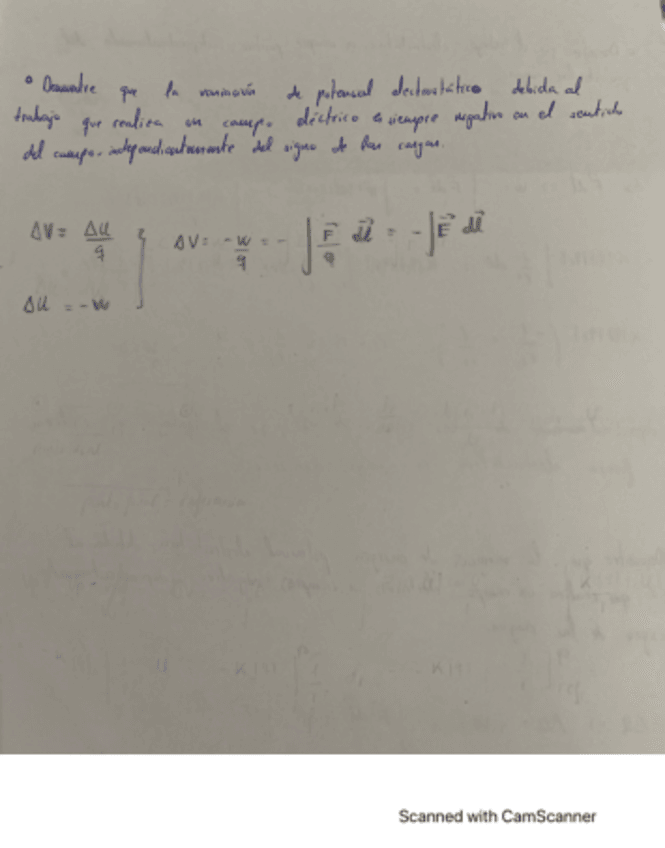 ° Demuestre que la variación de potencial electrostático debida al
trabajo que realiza un campo eléctrico es siempre negativo en el sentido
del campo, independientemente del signo de las cargas.
ΔV = ΔU/q } ΔV = -W/q = - ∫ F⃗/q dl⃗ = - ∫ E⃗ dl⃗
ΔU = -W
Scanned with CamScanner